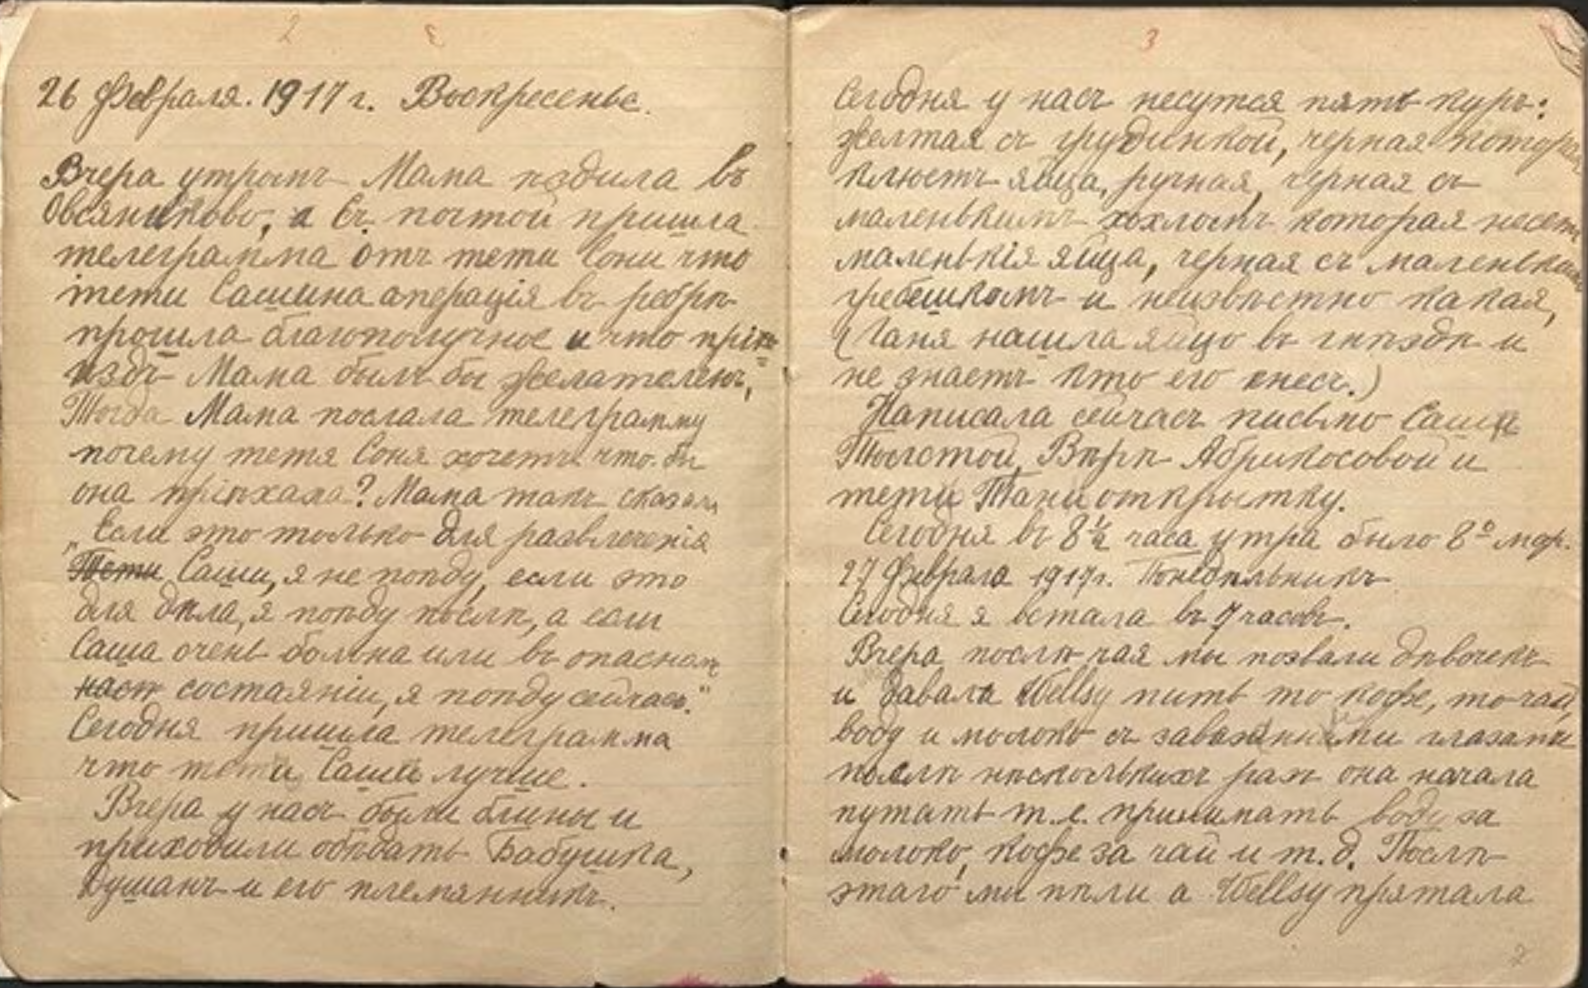 2
3
26 Февраля. 1917 г. Воскресенье.
Вчера утромъ Мама ѣздила въ
Овсянниково, а съ почтой пришла
телеграмма отъ тети Сони что
тети Сашина операцiя въ ребрѣ
прошла благополучное и что прiѣ-
ѣздъ Мама былъ бы желателенъ,
Тогда Мама послала телеграмму
почему тетя Соня хочетъ что-бы
она прiѣхала? Мама такъ сказала
„Если это только для развлеченiя
Тети Саши, я не поѣду, если это
для дѣла, я поѣду послѣ, а если
Саша очень больна или въ опасномъ
состаянiи, я поѣду сейчасъ."
Сегодня пришла телеграмма
что тети Саши лучше.
Вчера у насъ были блины и
приходили обѣдать Бабушка,
Душанъ и его племянникъ.
3
Сегодня у насъ несутся пять куръ:
желтая съ грудинкой, черная которая
клюетъ яйца, ручная, черная съ
маленькимъ хохломъ которая несетъ
маленькiя яйца, черная съ маленькимъ
гребешкомъ и неизвѣстно какая,
(Таня нашла яйцо въ гнѣздѣ и
не знаетъ кто его снесъ.)
Написала сейчасъ письмо Саши
Толстой, Вѣрѣ Абрикосовой и
тети Тани открытку.
Сегодня въ 8½ часа утра было 8° мор.
27 Февраля 1917г. Понедѣльникъ
Сегодня я встала въ 7 часовъ.
Вчера послѣ чая мы позвали дѣвочекъ
и давала Wellsy пить то кофе, то чай,
воду и молоко съ завязанными глазами
послѣ нѣсколькихъ разъ она начала
путать т.е. принимать воду за
молоко, кофе за чай и т. д. Послѣ
этаго мы пѣли а Wellsy прятала
2